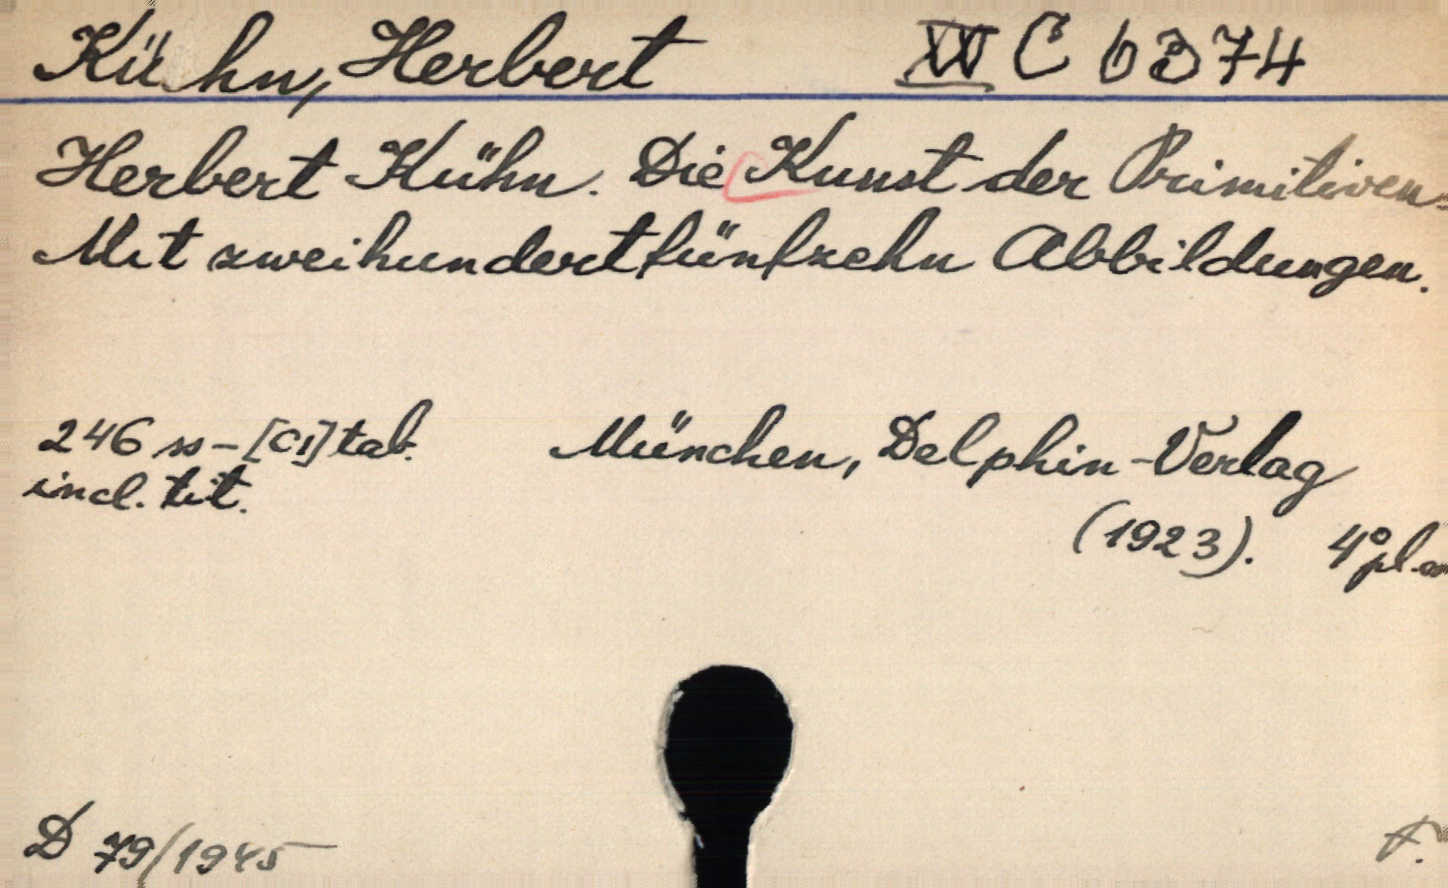 Kühn, Herbert C 6374
Herbert Kühn. Die Kunst der Primitiven.
Mit zweihundertfünfzehn Abbildungen.
246 ss-[CI] tab. München, Delphin-Verlag
incl. tit.
(1923). 4° pl.
D 79/1945